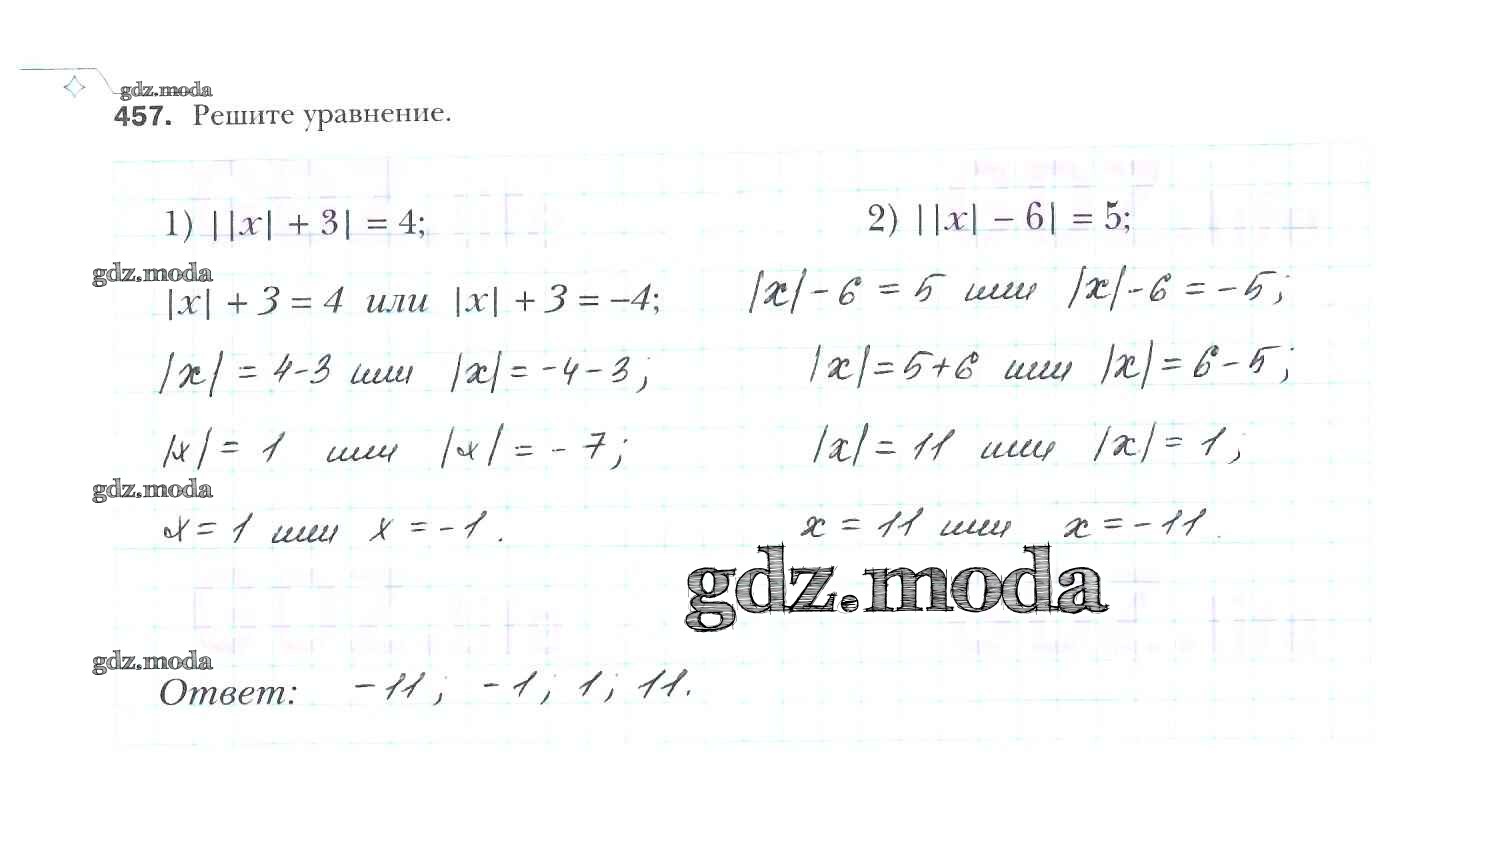 gdz.moda
457. Решите уравнение.
1) ||x| + 3| = 4;
2) ||x| – 6| = 5;
gdz.moda
|x| + 3 = 4 или |x| + 3 = –4;
|x| - 6 = 5 или |x| - 6 = -5;
|x| = 4-3 или |x| = -4-3;
|x| = 5+6 или |x| = 6-5;
|x| = 1 или |x| = -7;
|x| = 11 или |x| = 1;
gdz.moda
x = 1 или x = -1.
x = 11 или x = -11.
gdz.moda
gdz.moda
Ответ: -11; -1; 1; 11.